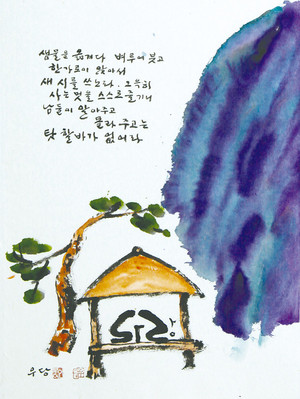 샘물을 옮겨다 벼루에 붓고
한가로이 앉아서
새 시를 쓰노라. 그윽히
사는 멋을 스스로 즐기니
남들이 알아주고
몰라 주고는
탓 할 바가 없어라
우당